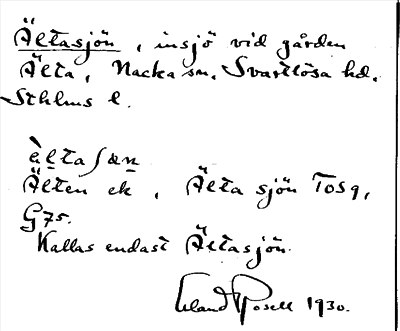 Ältasjön, insjö vid gården
Älta, Nacka sn. Svartlösa hd.
Sthlms l.
ὲlta ʃæn
Älten ek, Älta sjön Tosq,
G75.
Kallas endast Ältasjön.
Erland Rosell 1930.